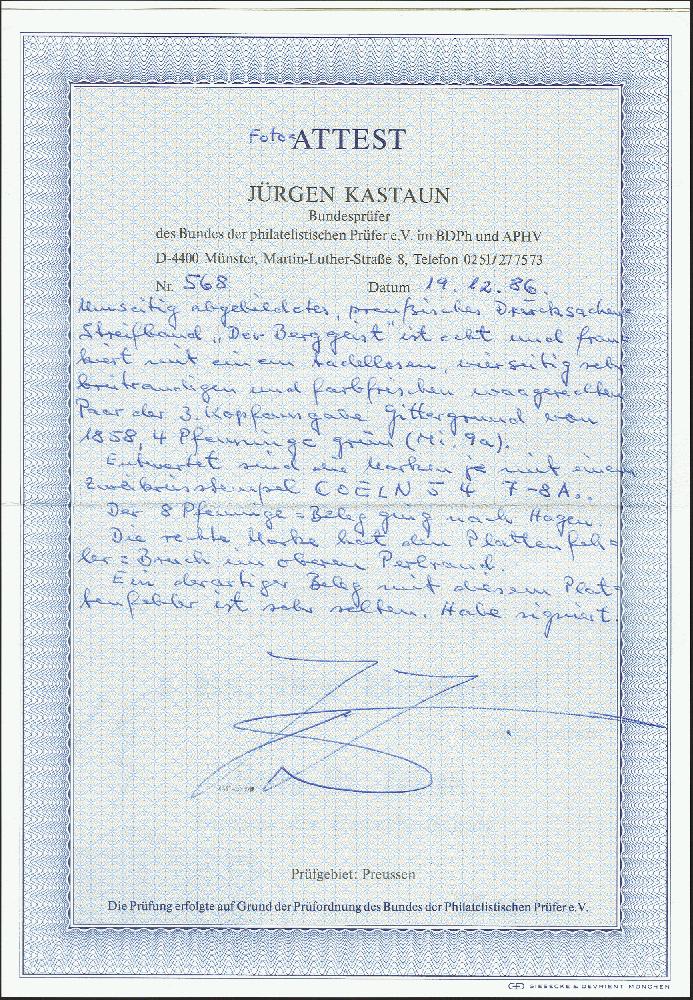 Foto=ATTEST
JÜRGEN KASTAUN
Bundesprüfer
des Bundes der philatelistischen Prüfer e.V. im BDPh und APHV
D-4400 Münster, Martin-Luther-Straße 8, Telefon 0251/277573
Nr. 568 Datum 19.12.86.
Umseitig abgebildetes, preußisches Drucksachen=
Streifband „Der Berggeist" ist echt und fran=
kiert mit einem tadellosen, vierseitig sehr
breitrandigen und farbfrischen waagerechten
Paar der 3. Kopfausgabe Gittergrund von
1858, 4 Pfennige grün (Mi. 9a).
Entwertet sind die Marken je mit einem
Zweikreisstempel COELN 5 4 7-8A..
Der 8 Pfennige=Beleg ging nach Hagen.
Die rechte Marke hat den Plattenfeh=
ler = Bruch im oberen Perlrand.
Ein derartiger Beleg mit diesem Plat=
tenfehler ist sehr selten. Habe signiert.
Prüfgebiet: Preussen
Die Prüfung erfolgte auf Grund der Prüfordnung des Bundes der Philatelistischen Prüfer e.V.
GIESECKE & DEVRIENT MÜNCHEN